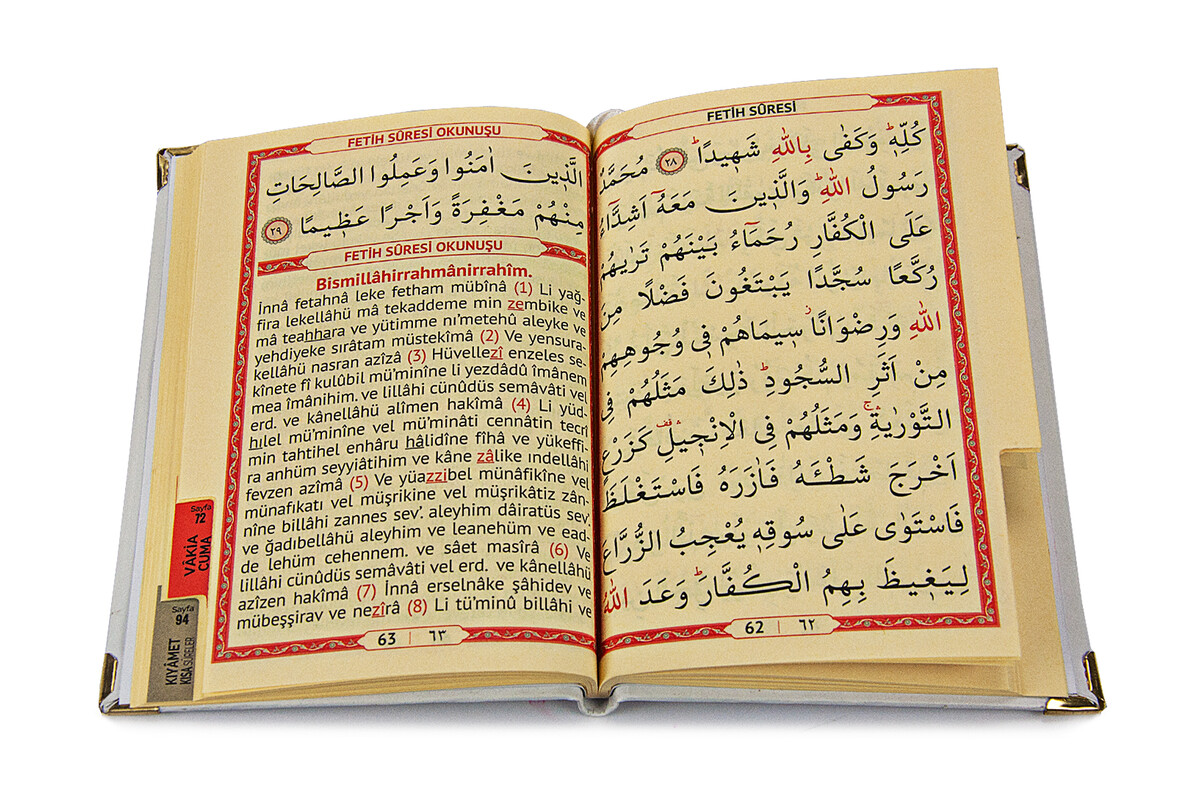 FETİH SÛRESİ
كُلِّهٖؕ وَكَفٰى بِاللّٰهِ شَهٖيدًاؕ ﴿٢٨﴾ مُحَمَّدٌ
رَسُولُ اللّٰهِؕ وَالَّذٖينَ مَعَهُٓ اَشِدَّٓاءُ
عَلَى الْكُفَّارِ رُحَمَٓاءُ بَيْنَهُمْ تَرٰيهُمْ
رُكَّعًا سُجَّدًا يَبْتَغُونَ فَضْلًا مِنَ
اللّٰهِ وَرِضْوَانًاؗ سٖيمَاهُمْ فٖى وُجُوهِهِمْ
مِنْ اَثَرِ السُّجُودِؕ ذٰلِكَ مَثَلُهُمْ فِى
التَّوْرٰيةِۚ وَمَثَلُهُمْ فِى الْاِنْجٖيلِ كَزَرْعٍ
اَخْرَجَ شَطْـَٔهُ فَاٰزَرَهُ فَاسْتَغْلَظَ
فَاسْتَوٰى عَلٰى سُوقِهٖ يُعْجِبُ الزُّرَّاعَ
لِيَغٖيظَ بِهِمُ الْكُفَّارَؕ وَعَدَ اللّٰهُ
62 | ٦٢
FETİH SÛRESİ OKUNUŞU
الَّذٖينَ اٰمَنُوا وَعَمِلُوا الصَّالِحَاتِ
مِنْهُمْ مَغْفِرَةً وَاَجْرًا عَظٖيمًا ﴿٢٩﴾
FETİH SÛRESİ OKUNUŞU
Bismillâhirrahmânirrahîm.
İnnâ fetahnâ leke fetham mübînâ (1) Li yağ-
fira lekellâhü mâ tekaddeme min zembike ve
mâ teahhara ve yütimme nı'metehû aleyke ve
yehdiyeke sırâtam müstekîmâ (2) Ve yensura-
kellâhü nasran azîzâ (3) Hüvellezî enzeles se-
kînete fî kulûbil mü'minîne li yezdâdû îmânem
mea îmânihim. ve lillâhi cünûdüs semâvâti vel
erd. ve kânellâhü alîmen hakîmâ (4) Li yüd-
hılel mü'minîne vel mü'minâti cennâtin tecrî
min tahtihel enhâru hâlidîne fîhâ ve yükeffi-
ra anhüm seyyiâtihim ve kâne zâlike ındellâhi
fevzen azîmâ (5) Ve yüazzibel münâfikîne vel
münafıkatı vel müşrikîne vel müşrikâtiz zân-
nîne billâhi zannes sev'. aleyhim dâiratüs sev'.
ve ğadıbellâhü aleyhim ve leanehüm ve ead-
de lehüm cehennem. ve sâet masîrâ (6) Ve
lillâhi cünûdüs semâvâti vel erd. ve kânellâhü
azîzen hakîmâ (7) İnnâ erselnâke şâhidev ve
mübeşşirav ve nezîrâ (8) Li tü'minû billâhi ve
63 | ٦٣
Sayfa
72
VÂKIA
CUMA
Sayfa
94
KIYÂMET
KISA SURELER